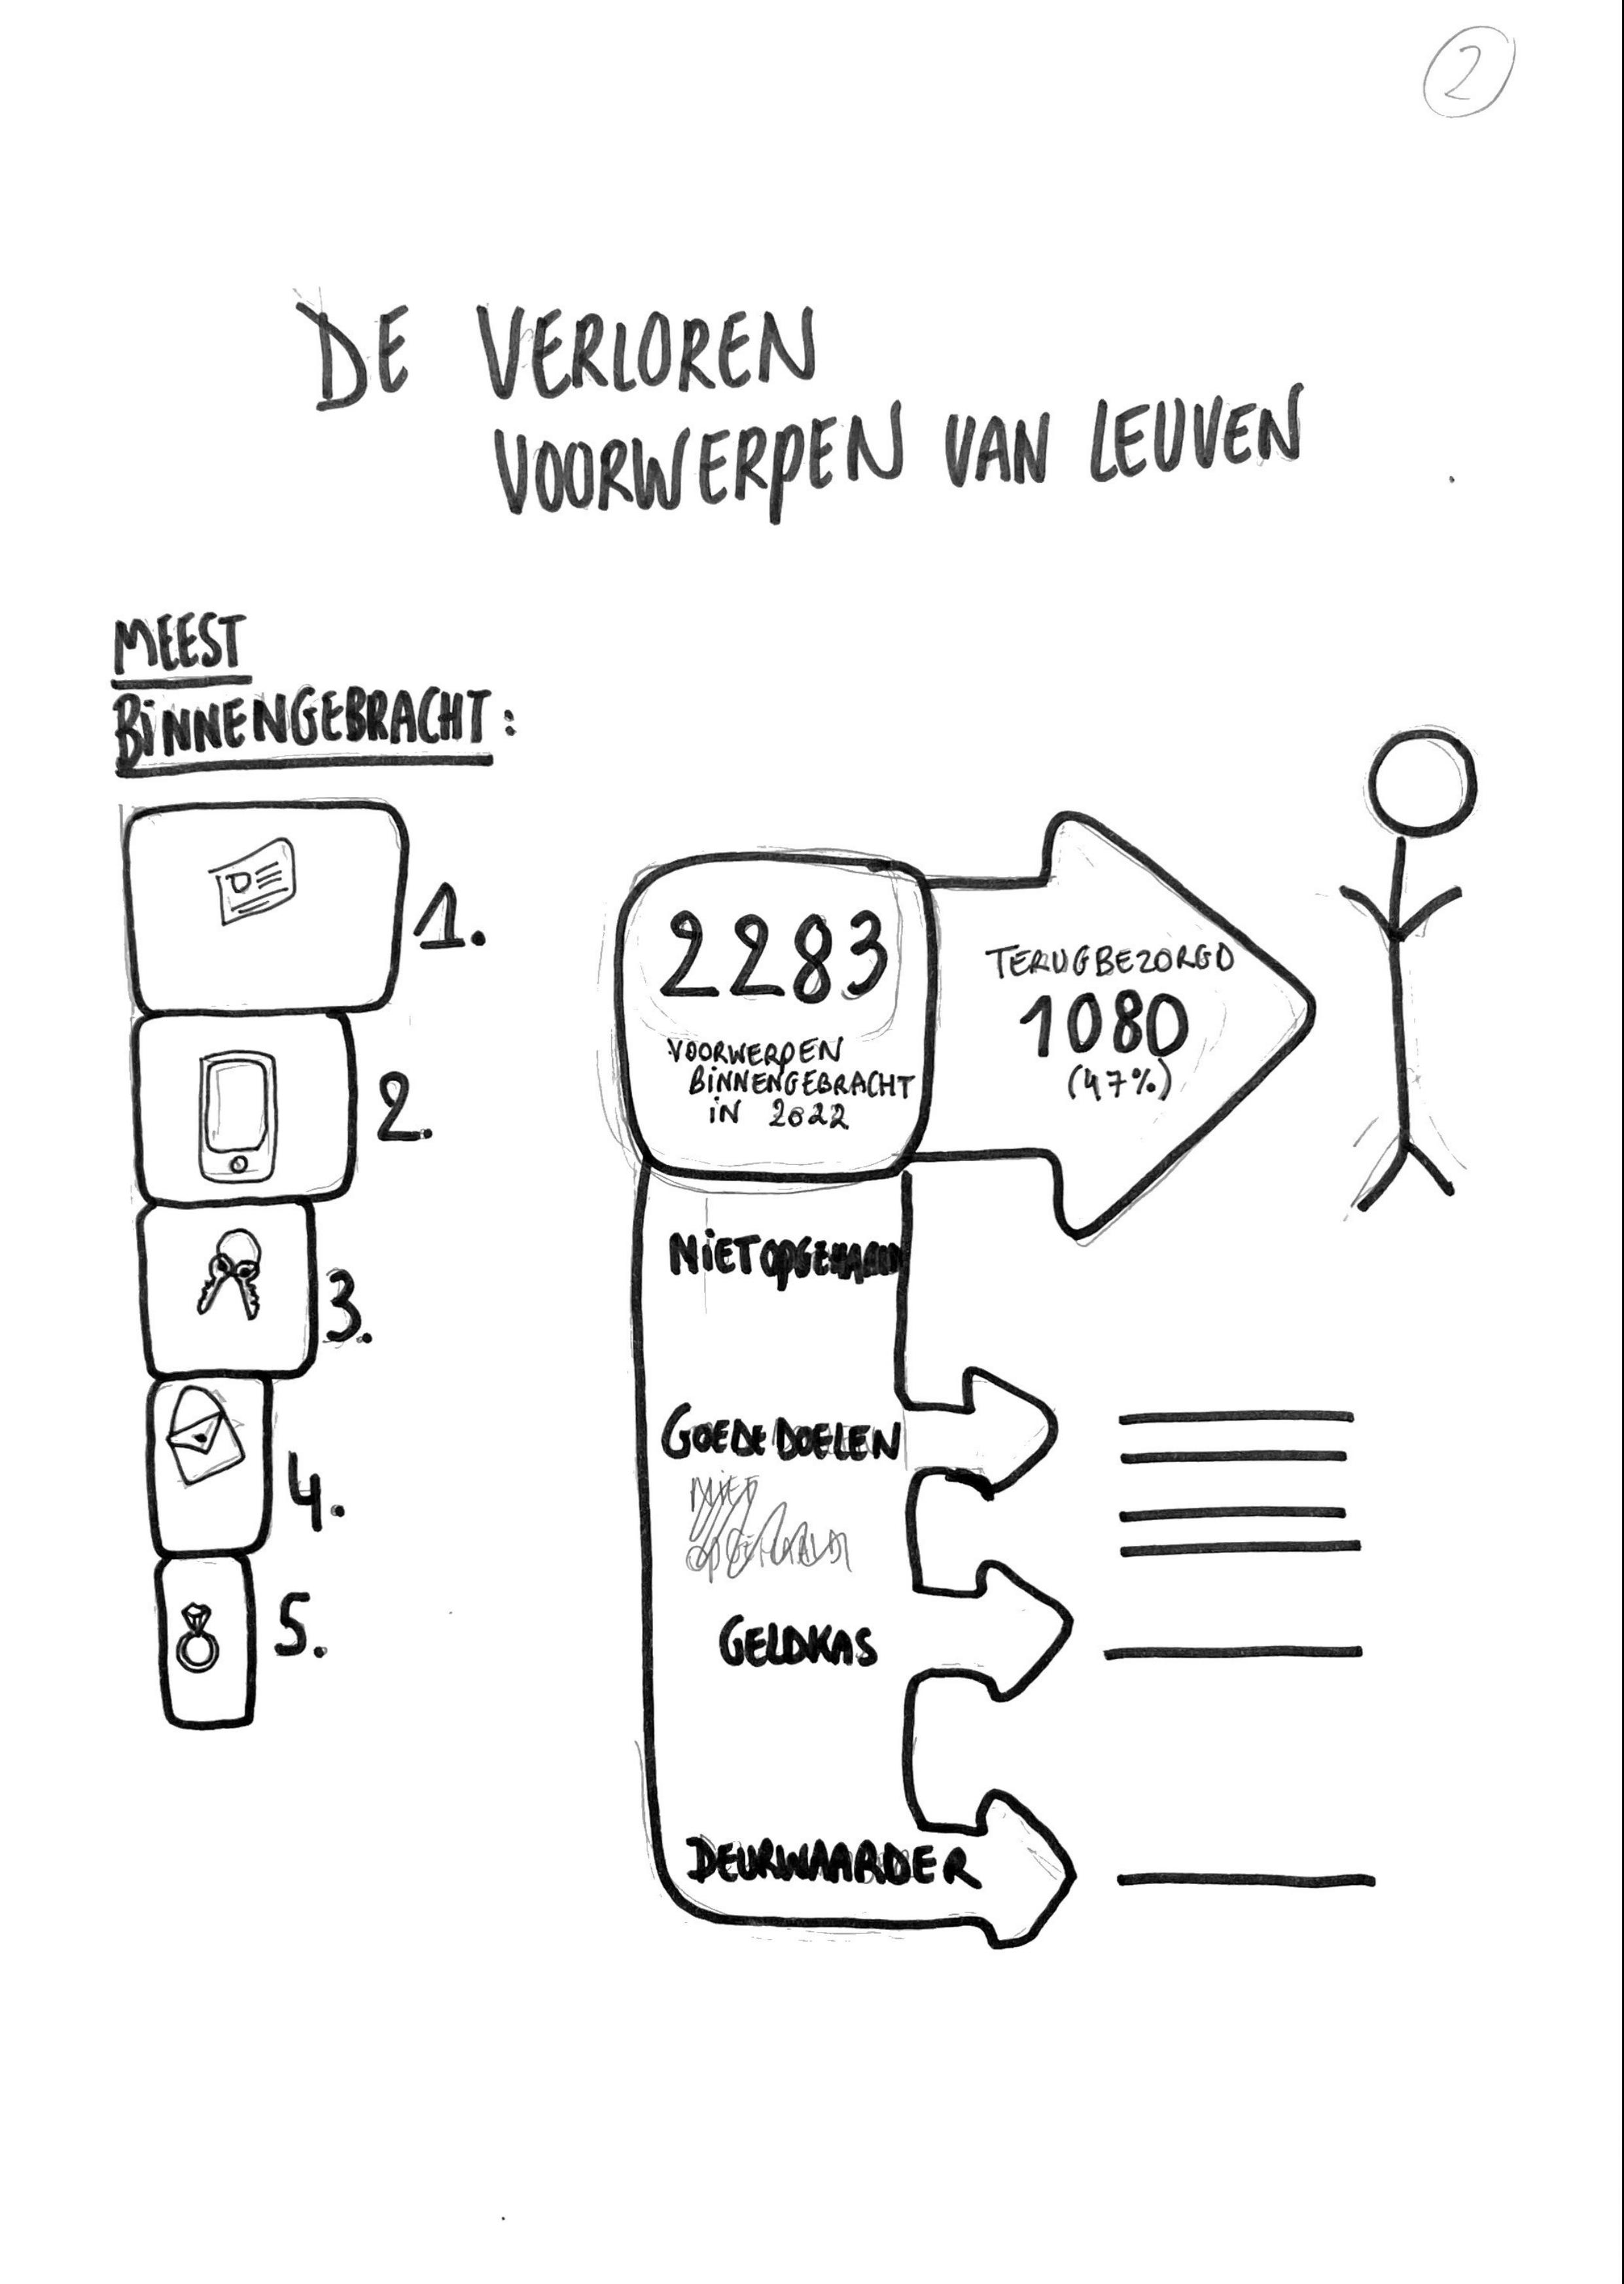 2
DE VERLOREN
VOORWERPEN VAN LEUVEN
MEEST
BINNENGEBRACHT:
1.
2.
3.
4.
5.
2283
VOORWERPEN
BINNENGEBRACHT
IN 2022
TERUGBEZORGD
1080
(47%)
NIET OPGEHAALD
GOEDE DOELEN
NIET
OPGEHAALD
GELDKAS
DEURWAARDER